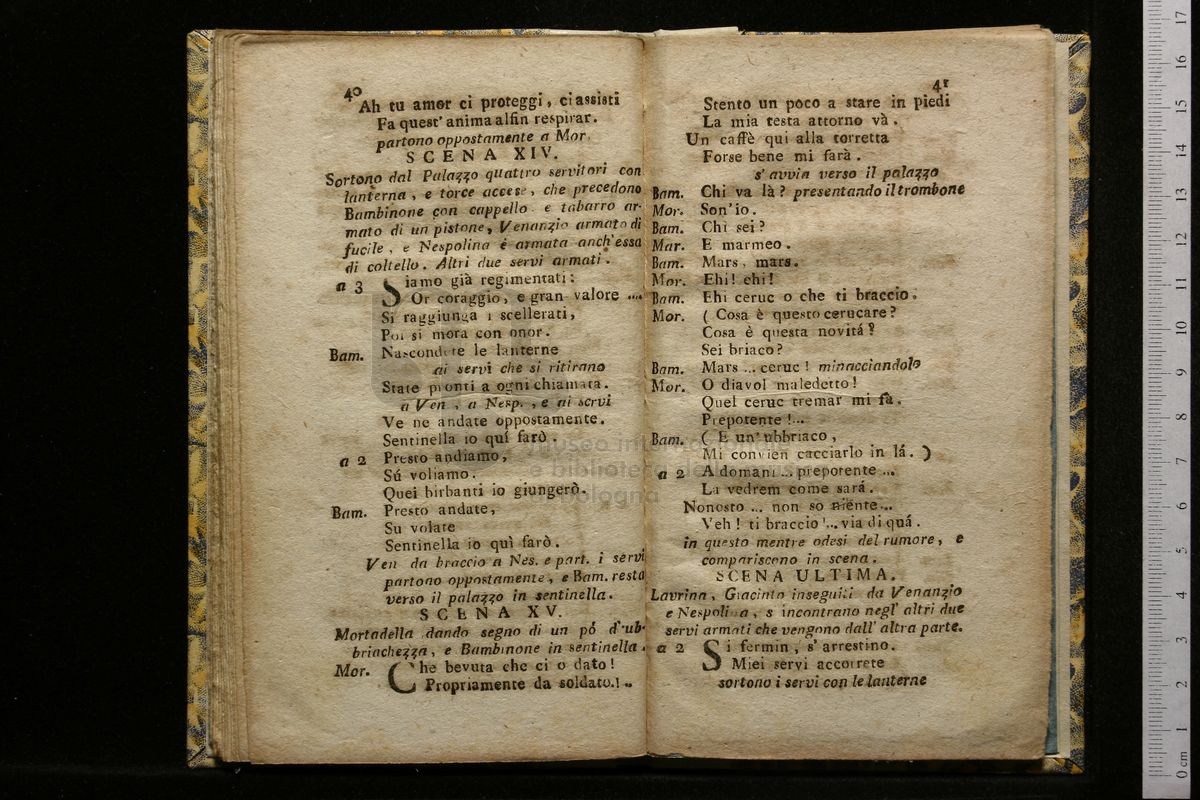 40
Ah tu amor ci proteggi, ci assisti
Fa quest' anima alfin respirar.
partono oppostamente a Mor.
SCENA XIV.
Sortono dal Palazzo quattro servitori con
lanterna, e torce accese, che precedono
Bambinone con cappello e tabarro ar-
mato di un pistone, Venanzio armato di
fucile, e Nespolina è armata anch'essa
di coltello. Altri due servi armati.
a 3 Siamo già regimentati:
Or coraggio, e gran valore ....
Si raggiunga i scellerati,
Poi si mora con onor.
Bam. Nascondete le lanterne
ai servi che si ritirano
State pronti a ogni chiamata.
a Ven, a Nesp., e ai servi
Ve ne andate oppostamente.
Sentinella io quí farò.
a 2 Presto andiamo,
Sú voliamo.
Quei birbanti io giungerò.
Bam. Presto andate,
Su volate
Sentinella io quì farò.
Ven da braccio a Nes. e part. i servi
partono oppostamente, e Bam. resta
verso il palazzo in sentinella.
SCENA XV.
Mortadella dando segno di un pó d'ub-
briachezza, e Bambinone in sentinella.
Mor. Che bevuta che ci o dato!
Propriamente da soldato.! ..
41
Stento un poco a stare in piedi
La mia testa attorno và.
Un caffè qui alla torretta
Forse bene mi farà.
s' avvia verso il palazzo
Bam. Chi va là? presentando il trombone
Mor. Son'io.
Bam. Chi sei?
Mar. E marmeo.
Bam. Mars, mars.
Mor. Ehi! ehi!
Bam. Ehi ceruc o che ti braccio.
Mor. ( Cosa è questo cerucare?
Cosa è questa novitá?
Sei briaco?
Bam. Mars ... ceruc! minacciandolo
Mor. O diavol maledetto!
Quel ceruc tremar mi fà.
Prepotente!...
Bam. ( E un' ubbriaco,
Mi convien cacciarlo in lá. )
a 2 A domani ... prepotente ...
La vedrem come sará.
Nonosto ... non so niente ...
Veh! ti braccio!... via di quá.
in questo mentre odesi del rumore, e
compariscono in scena.
SCENA ULTIMA.
Lavrina, Giacinto inseguiti da Venanzio
e Nespolina, s incontrano negl' altri due
servi armati che vengono dall' altra parte.
a 2 Si fermin, s' arrestino.
Miei servi accorrete
sortono i servi con le lanterne
museo internazionale
e biblioteca della musica
bologna
0 cm 1 2 3 4 5 6 7 8 9 10 11 12 13 14 15 16 17